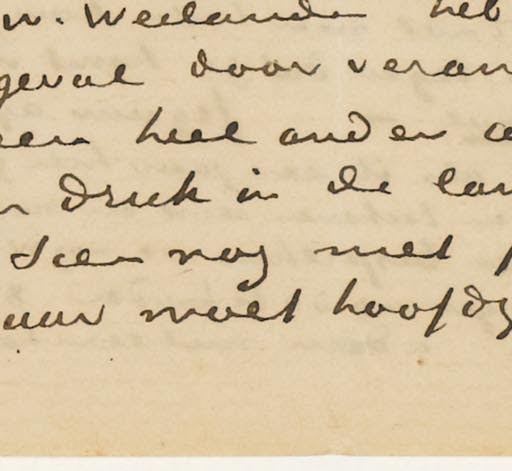 w. Weilanda heb
geval door veran
een heel ander
druk in de lan
zien nog met
uur moet hoofdz